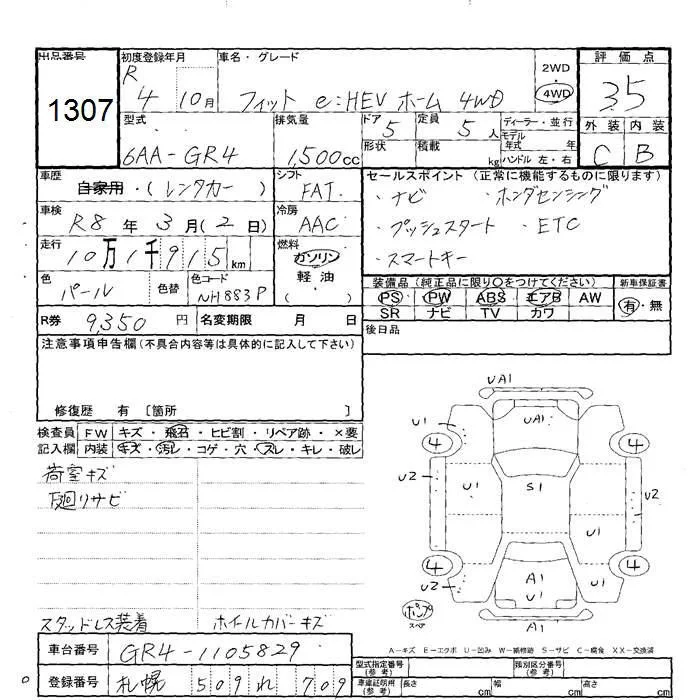 出品番号 初度登録年月 車名・グレード 2WD 評価点
1307 R 4 10月 フィット e:HEV ホーム 4WD 4WD 3.5
型式 排気量 ドア 定員 ディーラー・並行 外装 内装
6AA-GR4 1,500cc 5 5人 モデル年式 年 C B
形状 積載 kg ハンドル 左・右
車歴 自家用・(レンタカー) シフト FAT セールスポイント (正常に機能するものに限ります)
・ナビ ・ホンダセンシング
車検 R8年 3月(2日) 冷房 AAC ・プッシュスタート ・ETC
走行 10万1千915km 燃料 ガソリン ・スマートキー
軽油
( )
色 パール 色替 色コード NH883P 装備品 (純正品に限り○をつけてください) 新車保証書
PS PW ABS エアB AW 有・無
SR ナビ TV カワ
R券 9,350円 名変期限 月 日 後日品
注意事項申告欄(不具合内容等は具体的に記入して下さい)
修復歴 有 〔箇所 〕
検査員 FW キズ・飛石・ヒビ割・リペア跡・×要
記入欄 内装 キズ・汚レ・コゲ・穴・スレ・キレ・破レ
荷室キズ
下廻リサビ
スタッドレス装着 ホイルカバーキズ
UA1
U1 UA1
4 4
U2 U1 S1 U2
U1
4 4
U2 A1 U1
U1
ポンプ スペア A1
A-キズ E-エクボ U-凹み W-補修跡 S-サビ C-腐食 XX-交換済
車台番号 GR4-1105829
型式指定番号(参考) 類別区分番号(参考)
登録番号 札幌 509 れ 709
車庫証明用(参考) 長さ cm 幅 cm 高さ cm